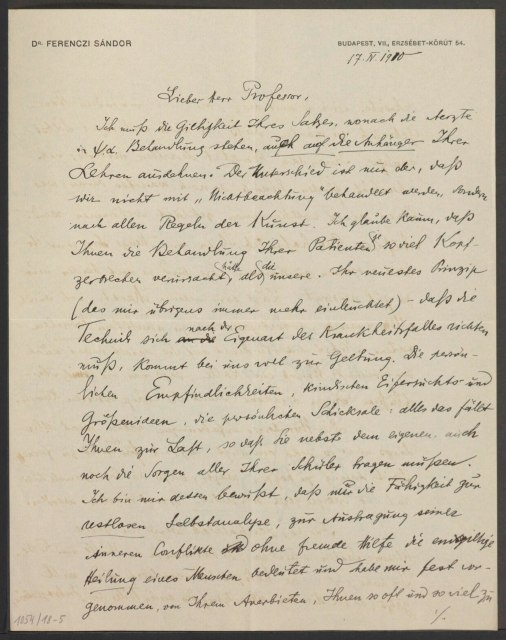 DR. FERENCZI SÁNDOR
BUDAPEST, VII., ERZSÉBET-KÖRÚT 54.
17. IV. 1910
Lieber Herr Professor,
Ich muß die Giltigkeit Ihres Satzes, wonach die Aerzte
in ψα. Behandlung stehen, auch auf die Anhänger Ihrer
Lehren ausdehnen. Der Unterschied ist nur der, daß
wir nicht mit „Nichtbeachtung" behandelt werden, sondern
nach allen Regeln der Kunst. Ich glaube kaum, daß
Ihnen die Behandlung Ihrer Patienten je so viel Kopf-
zerbrechen verursacht hätte, als die unsere. Ihr neuestes Prinzip
(das mir übrigens immer mehr einleuchtet) – daß die
Technik sich nach der Eigenart des Krankheitsfalles richten
muß, kommt bei uns voll zur Geltung. Die persön-
lichen Empfindlichkeiten, kindischen Eifersuchts- und
Größenideen, die persönlichen Schicksale: alles das fällt
Ihnen zur Last, so daß Sie nebst dem eigenen, auch
noch die Sorgen aller Ihrer Schüler tragen müßen.
Ich bin mir dessen bewußt, daß nur die Fähigkeit zur
restlosen Selbstanalyse, zur Austragung seiner
inneren Conflikte ohne fremde Hilfe die endgültige
Heilung eines Menschen bedeutet und habe mir fest vor-
genommen, von Ihrem Anerbieten, Ihnen so oft und so viel zu
./.
1054/18-5